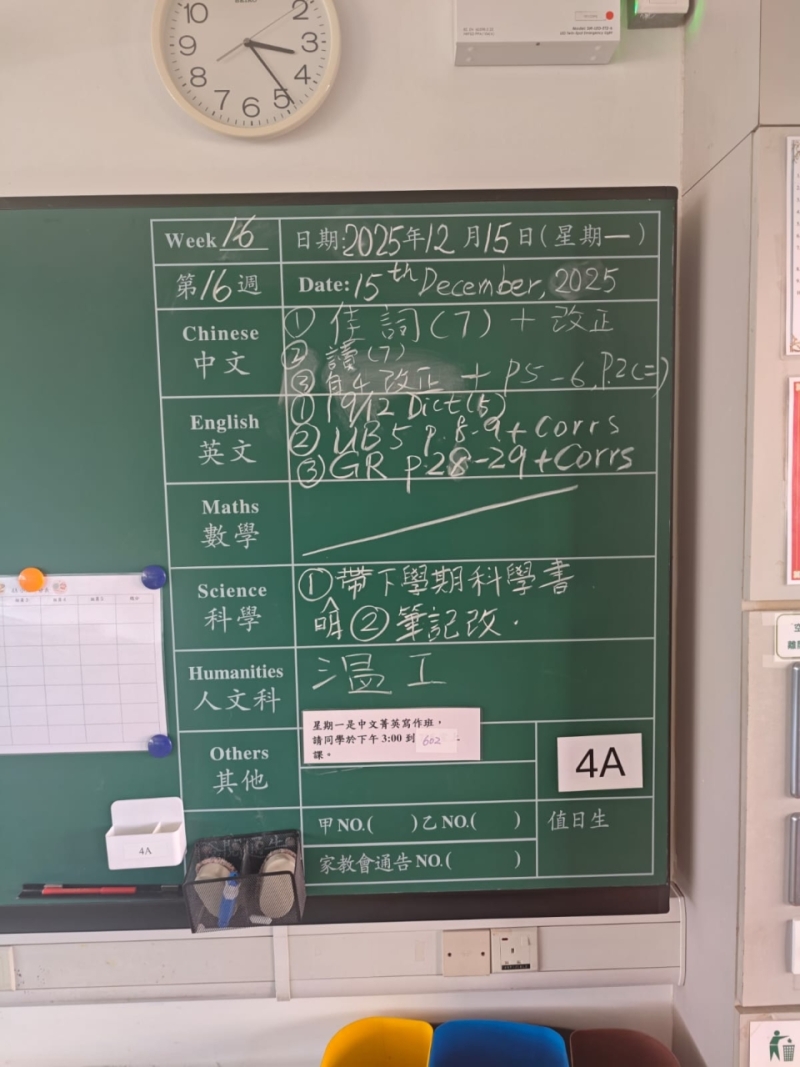 10 2 9 3 8 4 7 6 5
Week 16
日期:2025年12月15日(星期一)
第16週
Date: 15th December, 2025
Chinese
中文
① 佳詞(7) + 改正
② 讀(7)
③ 自4 改正 + P5-6, P.2(二)
English
英文
① 19/12 Dict (5)
② UB5 p.8-9 + Corrs
③ GR p.28-29 + Corrs
Maths
數學
Science
科學
① 帶下學期科學書
明 ② 筆記改.
Humanities
人文科
溫工
Others
其他
星期一是中文菁英寫作班，
請同學於下午 3:00 到 602
課。
4A
甲NO.( )乙NO.( )
值日生
家教會通告NO.( )
4A